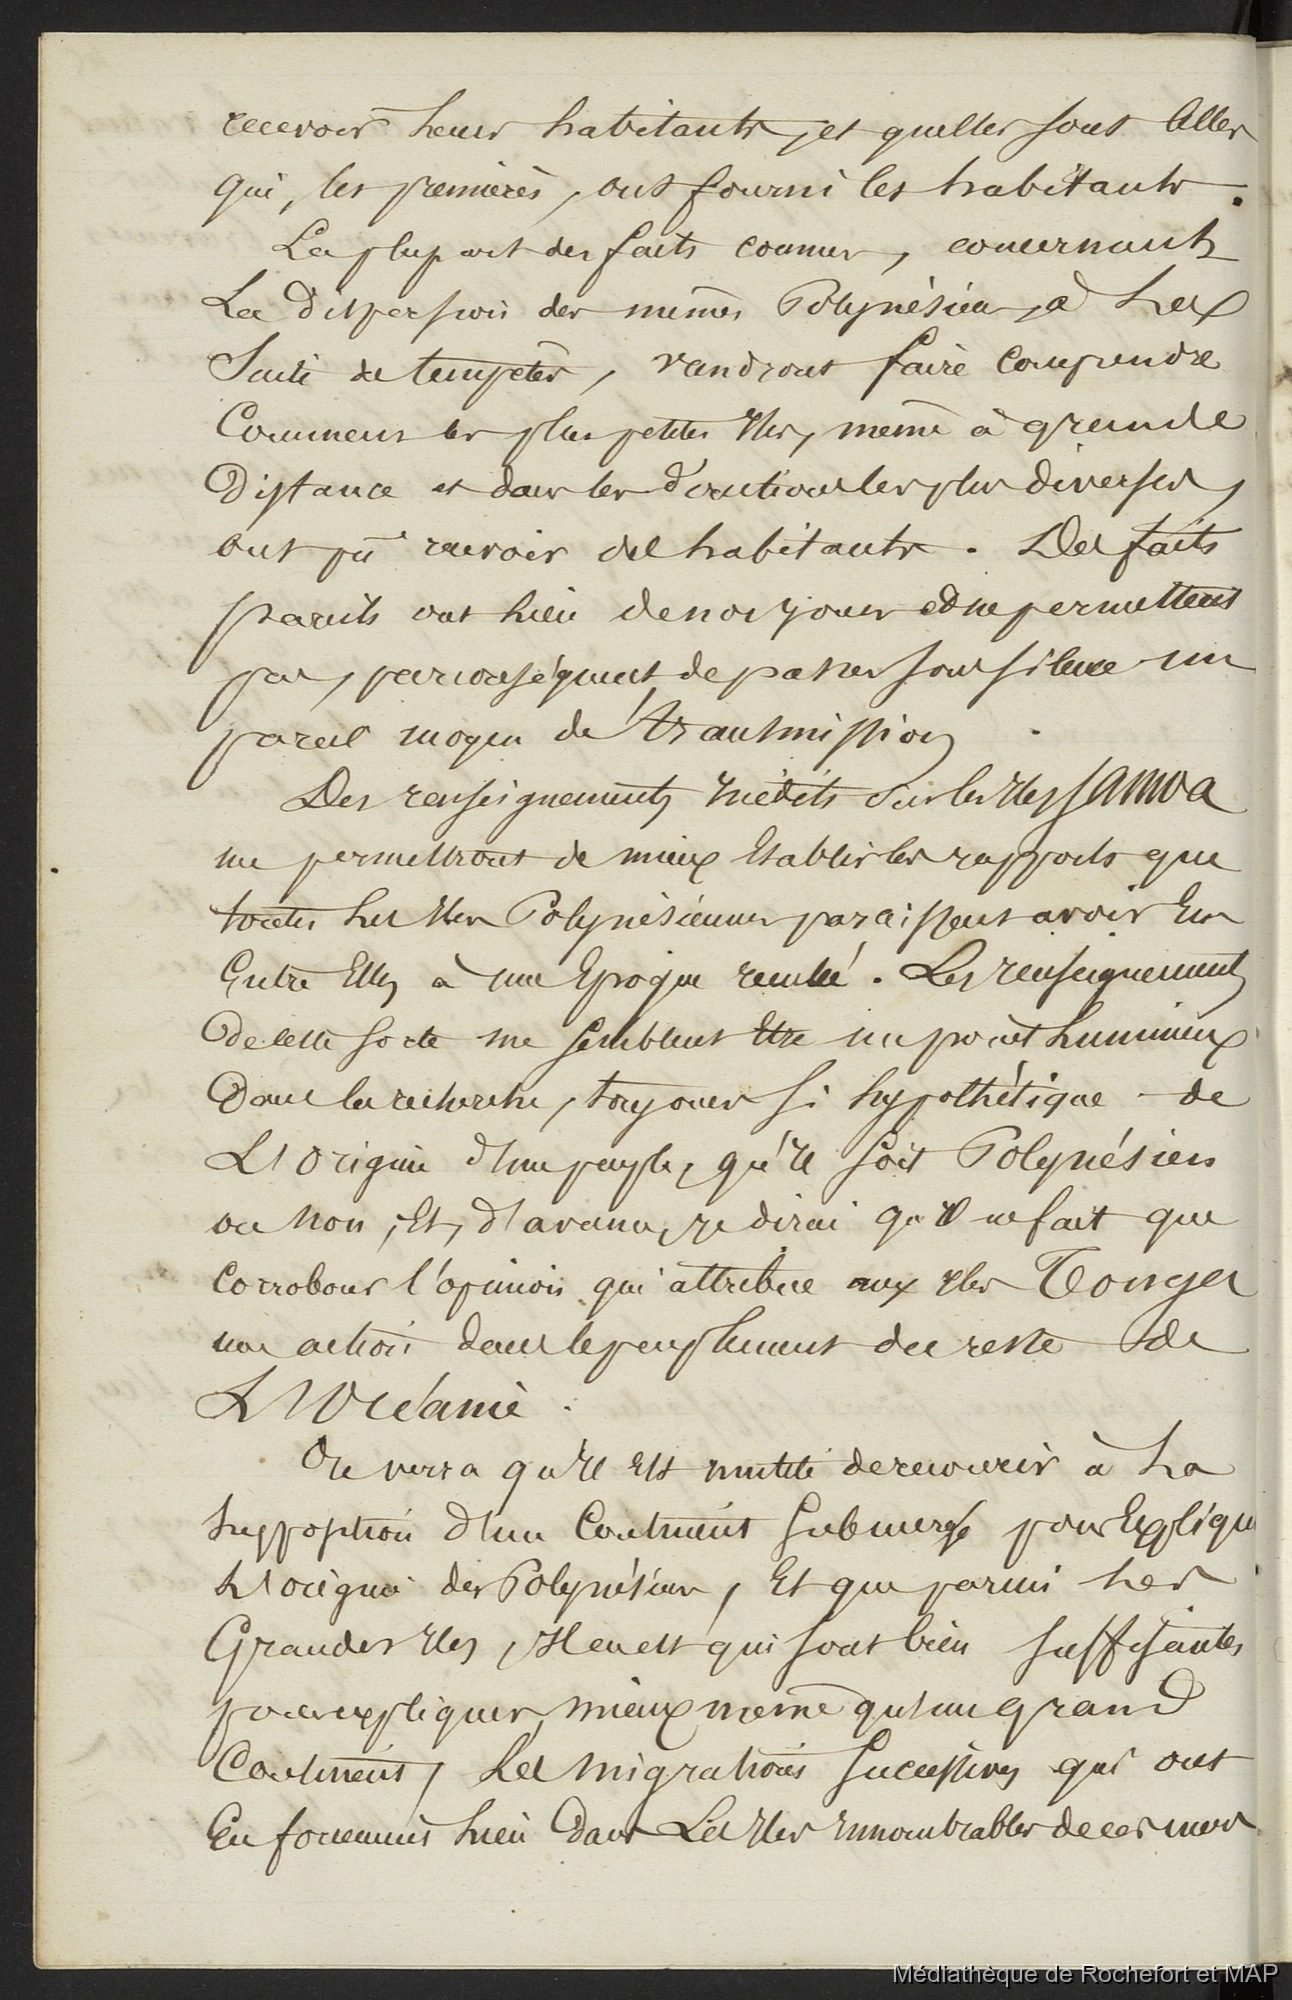 recevoir leurs habitants, et quelles sont Celles
qui, les premières, ont fourni les habitants.
La plupart des faits connus, concernant
La Dispersion des mêmes Polynésiens, à La
Suite de tempêtes, viendront faire Comprendre
Comment les plus petites Iles, même à grande
Distance et dans les directions les plus diverses,
ont pû recevoir des habitants. Des faits
pareils ont lieu de nos jours et ne permettent
pas, par conséquent, de passer sous silence un
pareil moyen de transmission
Des renseignements Inédits sur les Iles SAMOA
me permettront de mieux Etablir les rapports que
toutes Les Iles Polynésiennes paraissent avoir Eu
Entre Elles à une Epoque reculée. Les renseignements
De cette sorte me semblent Etre un point Lumineux
Dans la recherche, toujours si hypothétique de
L'Origine d'un peuple, qu'Il soit Polynésien
ou Non; Et, d'avance, je dirai qu'Il ne fait que
Corroborer l'opinion qui attribue aux Iles Tonga
une action dans le peuplement du reste de
L'Océanie.
On verra qu'Il Est inutile de recourir à La
supposition d'un Continent Submergé pour Expliquer
L'origine des Polynésiens, Et que parmi Les
Grandes Iles, Il en est qui sont bien suffisantes
pour expliquer, mieux même qu'un grand
Continent, Les Migrations Successives qui ont
Eu lieu Dans Les Iles Innombrables de ces mers
Médiathèque de Rochefort et MAP